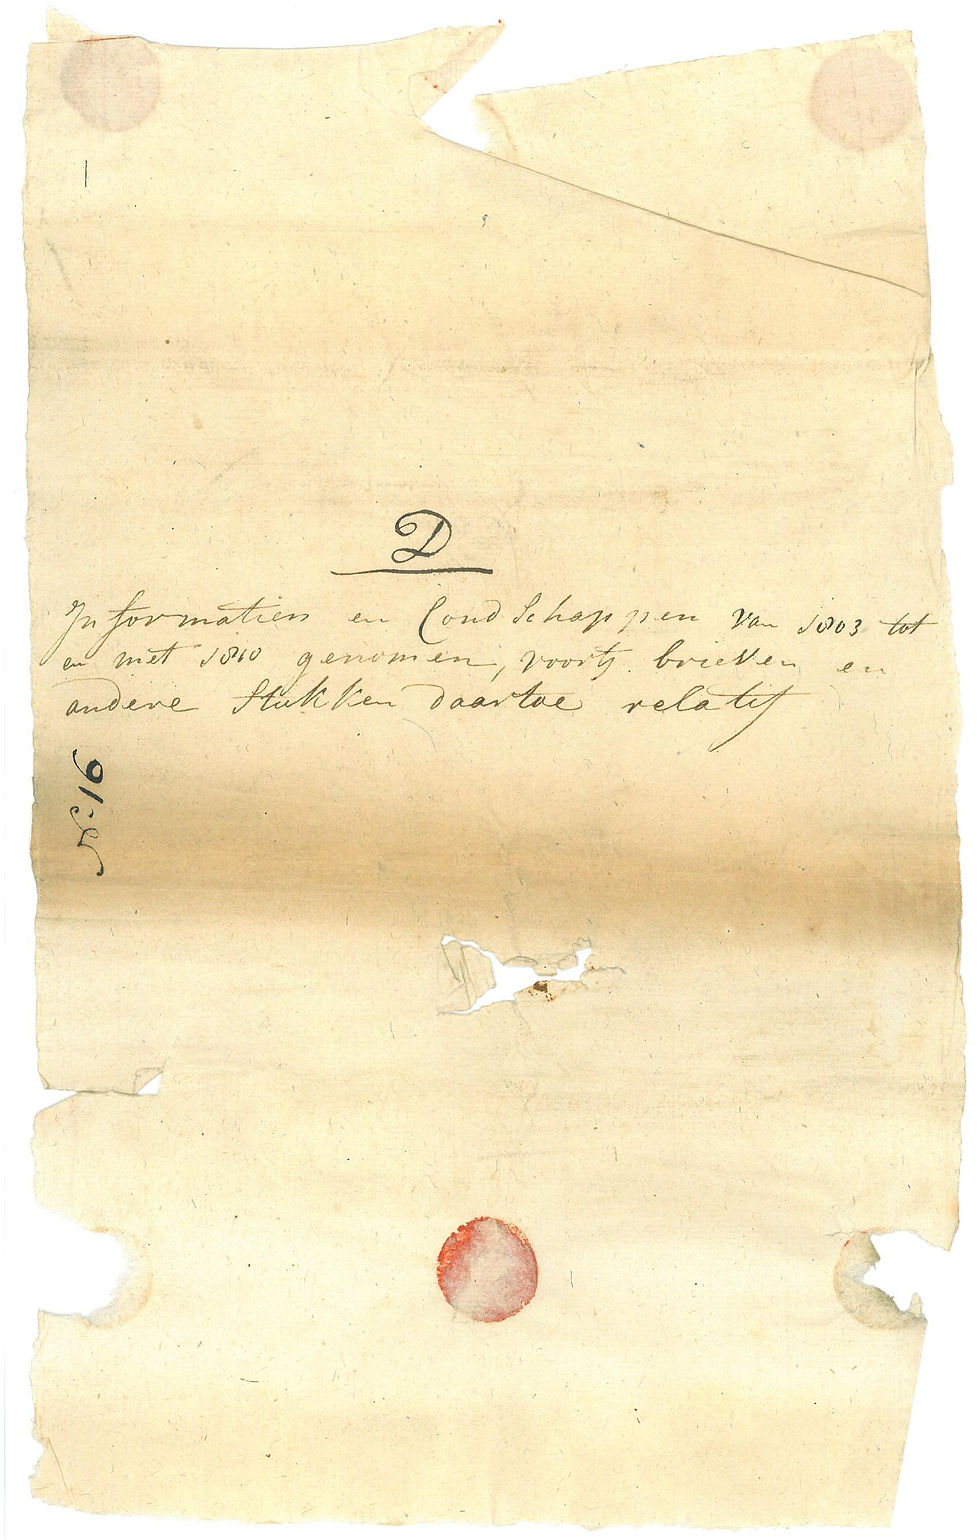 D
Informatien en Condschappen van 1803 tot
en met 1810 genomen, voorts brieven en
andere Stukken daartoe relatif
16